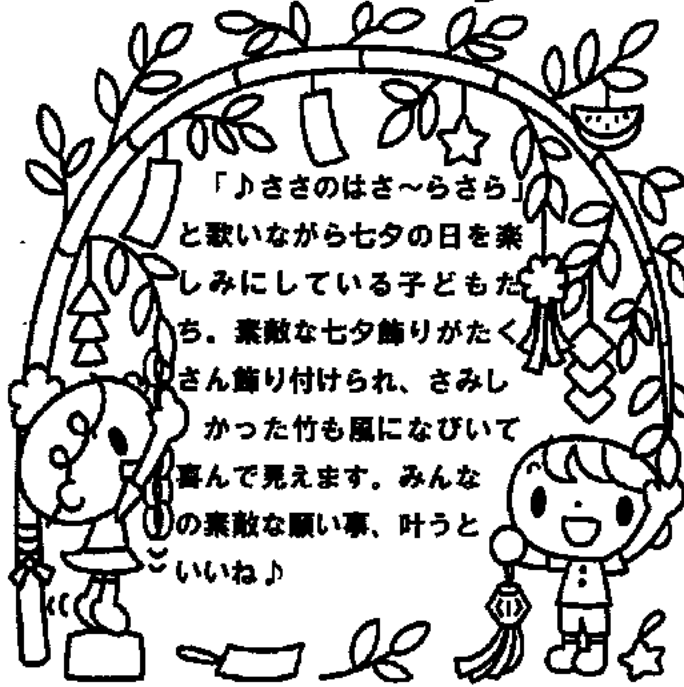 「♪ささのはさ～らさら」
と歌いながら七夕の日を楽
しみにしている子どもた
ち。素敵な七夕飾りがたく
さん飾り付けられ、さみし
かった竹も風になびいて
喜んで見えます。みんな
の素敵な願い事、叶うと
いいね♪